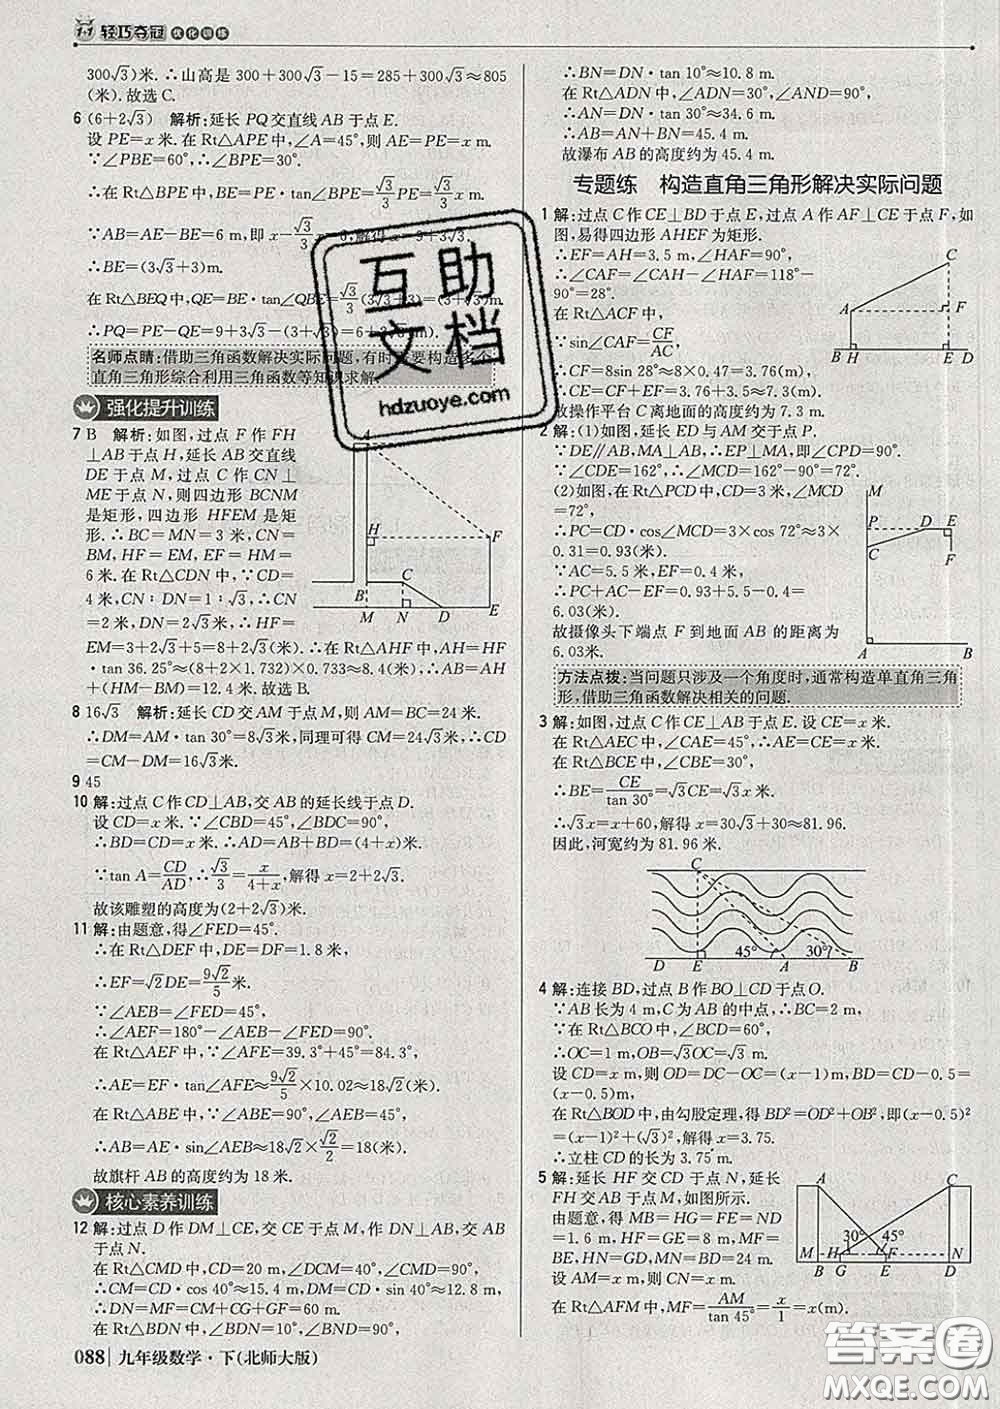 1+1 轻巧夺冠 优化训练
300√3)米.∴山高是 300+300√3−15=285+300√3≈805
(米).故选C.
6 (6+2√3) 解析:延长 PQ交直线 AB 于点 E.
设 PE=x 米.在 Rt△APE 中,∠A=45°,则 AE=PE=x 米.
∵∠PBE=60°,∴∠BPE=30°.
∴在 Rt△BPE 中,BE=PE·tan∠BPE=√3/3 PE=√3/3 x 米.
∵AB=AE−BE=6 m,即 x−√3/3 x=6,解得 x=9+3√3.
∴BE=(3√3+3)m.
在 Rt△BEQ 中,QE=BE·tan∠QBE=√3/3(3√3+3)=(3+√3)m.
∴PQ=PE−QE=9+3√3−(3+√3)=6+2√3(m).
名师点睛:借助三角函数解决实际问题,有时需要构造多个
直角三角形综合利用三角函数等知识求解.
强化提升训练
7 B 解析:如图,过点 F 作 FH
⊥AB 于点 H,延长 AB 交直线
DE 于点 M,过点 C 作 CN ⊥
ME 于点 N,则四边形 BCNM
是矩形,四边形 HFEM 是矩
形.∴BC=MN=3 米,CN=
BM,HF=EM,EF=HM=
6 米.在 Rt△CDN 中,∵CD=
4 米,CN∶DN=1∶√3,∴CN
=2 米,DN=2√3 米,∴HF=
EM=3+2√3+5=(8+2√3)米.∴在 Rt△AHF 中,AH=HF
·tan 36.25°≈(8+2×1.732)×0.733≈8.4(米).∴AB=AH
+(HM−BM)=12.4 米.故选 B.
A
H
F
B
C
M
N
D
E
8 16√3 解析:延长 CD 交 AM 于点 M,则 AM=BC=24 米.
∴DM=AM·tan 30°=8√3米,同理可得 CM=24√3米,∴CD
=CM−DM=16√3米.
9 45
10 解:过点 C 作 CD⊥AB,交 AB 的延长线于点 D.
设 CD=x 米.∵∠CBD=45°,∠BDC=90°,
∴BD=CD=x 米.∴AD=AB+BD=(4+x)米.
∵tan A=CD/AD,∴√3/3=x/(4+x),解得 x=2+2√3.
故该雕塑的高度为(2+2√3)米.
11 解:由题意,得∠FED=45°.
∴在 Rt△DEF 中,DE=DF=1.8 米,
∴EF=√2DE=9√2/5米.
∵∠AEB=∠FED=45°,
∴∠AEF=180°−∠AEB−∠FED=90°.
在 Rt△AEF 中,∵∠AFE=39.3°+45°=84.3°,
∴AE=EF·tan∠AFE≈9√2/5×10.02≈18√2(米).
在 Rt△ABE 中,∵∠ABE=90°,∠AEB=45°,
∴AB=AE·sin∠AEB≈18√2×√2/2=18(米).
故旗杆 AB 的高度约为 18 米.
核心素养训练
12 解:过点 D 作 DM⊥CE,交 CE 于点 M,作 DN⊥AB,交 AB
于点 N.
在 Rt△CMD 中,CD=20 m,∠DCM=40°,∠CMD=90°,
∴CM=CD·cos 40°≈15.4 m,DM=CD·sin 40°≈12.8 m,
∴DN=MF=CM+CG+GF=60 m.
在 Rt△BDN 中,∠BDN=10°,∠BND=90°,
∴BN=DN·tan 10°≈10.8 m.
在 Rt△ADN 中,∠ADN=30°,∠AND=90°,
∴AN=DN·tan30°≈34.6 m.
∴AB=AN+BN=45.4 m.
故瀑布 AB 的高度约为 45.4 m.
专题练 构造直角三角形解决实际问题
1 解:过点 C 作 CE⊥BD 于点 E,过点 A 作 AF⊥CE 于点 F,如
图,易得四边形 AHEF 为矩形.
∴EF=AH=3.5 m,∠HAF=90°,
∴∠CAF=∠CAH−∠HAF=118°−
90°=28°.
在 Rt△ACF 中,
∵sin∠CAF=CF/AC,
∴CF=8sin 28°≈8×0.47=3.76(m).
∴CE=CF+EF=3.76+3.5≈7.3(m).
故操作平台 C 离地面的高度约为 7.3 m.
C
A
F
B
H
E
D
2 解:(1)如图,延长 ED 与 AM 交于点 P.
∵DE∥AB,MA⊥AB,∴EP⊥MA,即∠CPD=90°.
∵∠CDE=162°,∴∠MCD=162°−90°=72°.
(2)如图,在 Rt△PCD 中,CD=3 米,∠MCD
=72°,
∴PC=CD·cos∠MCD=3×cos 72°≈3×
0.31=0.93(米).
∵AC=5.5 米,EF=0.4 米,
∴PC+AC−EF=0.93+5.5−0.4=
6.03(米).
故摄像头下端点 F 到地面 AB 的距离为
6.03 米.
M
P
D
E
C
F
A
B
方法点拨:当问题只涉及一个角度时,通常构造单直角三角
形,借助三角函数解决相关的问题.
3 解:如图,过点 C 作 CE⊥AB 于点 E.设 CE=x 米.
在 Rt△AEC 中,∠CAE=45°,∴AE=CE=x 米.
在 Rt△BCE 中,∠CBE=30°,
∴BE=CE/tan 30°=√3CE=√3x 米.
∴√3x=x+60,解得 x=30√3+30≈81.96.
因此,河宽约为 81.96 米.
C
45°
30°
D
E
A
B
4 解:连接 BD,过点 B 作 BO⊥CD 于点 O.
∵AB 长为 4 m,C 为 AB 的中点,∴BC=2 m,
∵在 Rt△BCO 中,∠BCD=60°,
∴OC=1 m,OB=√3OC=√3 m.
设 CD=x m,则 OD=DC−OC=(x−1)m,BD=CD−0.5=
(x−0.5)m.
在 Rt△BOD 中,由勾股定理,得 BD²=OD²+OB²,即(x−0.5)²
=(x−1)²+(√3)²,解得 x=3.75.
∴立柱 CD 的长为 3.75 m.
5 解:延长 HF 交 CD 于点 N,延长
FH 交 AB 于点 M,如图所示.
由题意得 MB=HG=FE=ND
=1.6 m,HF=GE=8 m,MF=
BE,HN=GD,MN=BD=24 m.
设 AM=x m,则 CN=x m.
在 Rt△AFM 中,MF=AM/tan 45°=x/1=x(m).
A
C
30°
45°
M
H
F
N
B
G
E
D
088 九年级数学·下(北师大版)
互助
文档
hdzuoye.com
答案圈
MXQE.COM